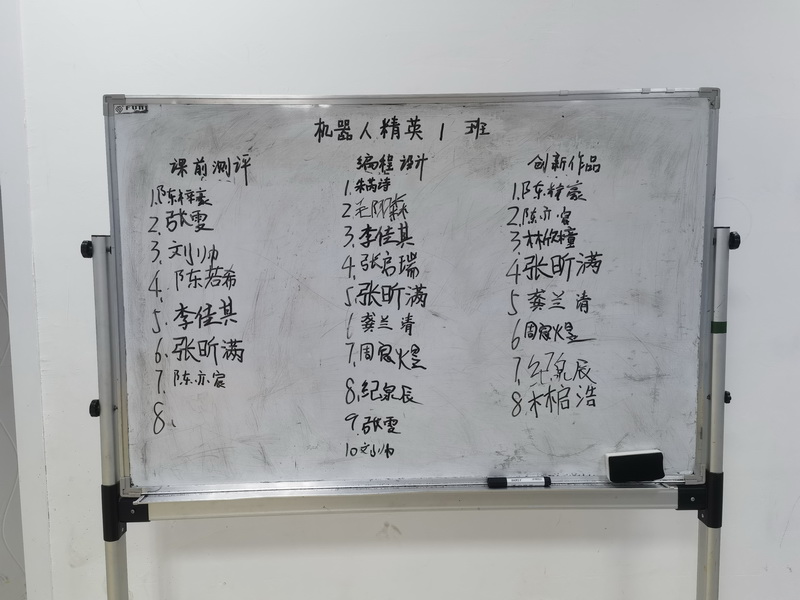 机器人精英1班
课前测评
1.陈梓豪
2.张雯
3.刘帅
4.陈若希
5.李佳其
6.张昕满
7.陈亦宸
8.
编程设计
1.朱芮诗
2
3.李佳其
4.张启瑞
5.张昕满
6龚兰清
7.周冠煜
8.纪泉辰
9.张雯
10刘帅
创新作品
1.陈梓豪
2.陈亦宸
3林俊橦
4张昕满
5龚兰清
6周冠煜
7.纪泉辰
8林启浩